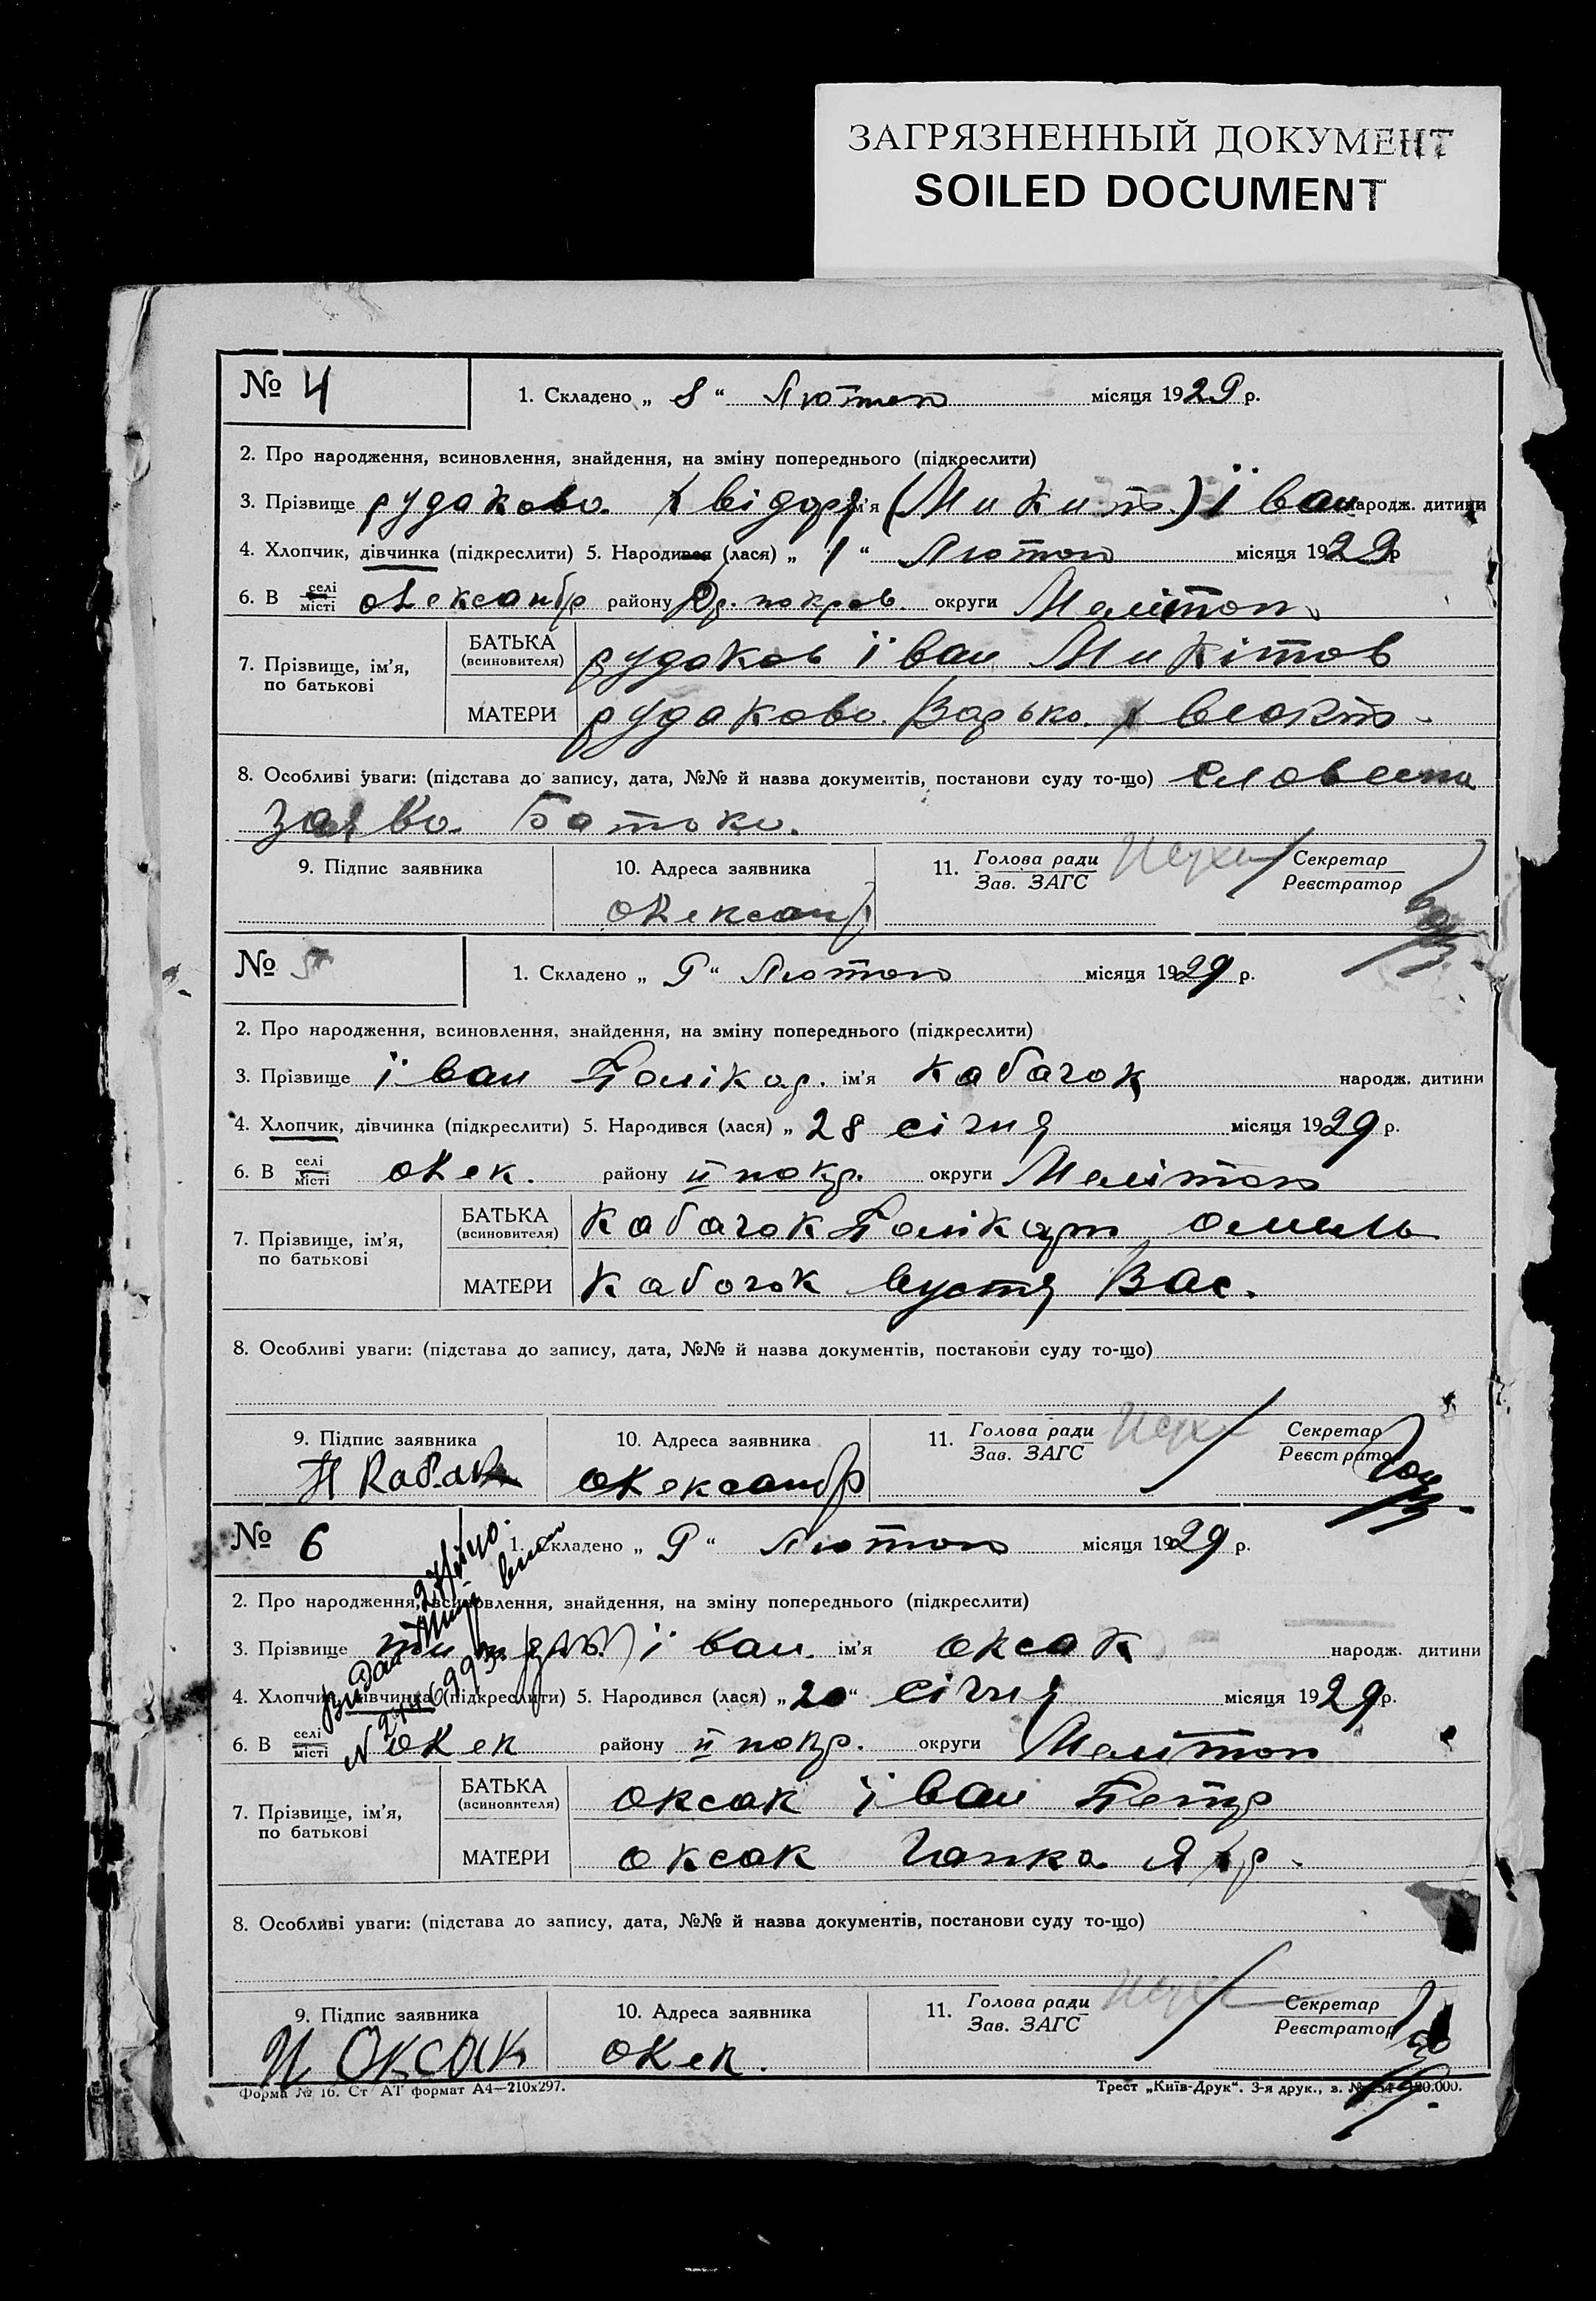 ЗАГРЯЗНЕННЫЙ ДОКУМЕНТ
SOILED DOCUMENT
№ 4
1. Складено „ 8 “ Лютоп місяця 1929 р.
2. Про народження, всиновлення, знайдення, на зміну попереднього (підкреслити)
3. Прізвище рудакова ім'я (Микит.) їван народж. дитини
4. Хлопчик, дівчинка (підкреслити) 5. Народився (лася) „ 1 “ Лютоп місяця 1929 р
6. В селі місті олександр району Др. покров. округи Мелітоп
7. Прізвище, ім'я, по батькові
БАТЬКА (всиновителя) рудаков їван Микітов
МАТЕРИ рудакова Варька
8. Особливі уваги: (підстава до запису, дата, №№ й назва документів, постанови суду то-що) словесна
заява батока.
9. Підпис заявника 10. Адреса заявника 11. Голова ради Зав. ЗАГС Секретар Реєстратор
олександр
№ 5
1. Складено „ 9 “ Лютоп місяця 1929 р.
2. Про народження, всиновлення, знайдення, на зміну попереднього (підкреслити)
3. Прізвище їван Полікар. ім'я кабачок народж. дитини
4. Хлопчик, дівчинка (підкреслити) 5. Народився (лася) „ 28 січня місяця 1929 р.
6. В селі місті олек. району ІІ покр. округи Мелітоп
7. Прізвище, ім'я, по батькові
БАТЬКА (всиновителя) кабачок Полікарп омель
МАТЕРИ кабачок вустя Вас.
8. Особливі уваги: (підстава до запису, дата, №№ й назва документів, постанови суду то-що)
9. Підпис заявника 10. Адреса заявника 11. Голова ради Зав. ЗАГС Секретар Реєстратор
олександр
№ 6
1. Складено „ 9 “ Лютоп місяця 1929 р.
2. Про народження, всиновлення, знайдення, на зміну попереднього (підкреслити)
3. Прізвище їван. ім'я оксак народж. дитини
4. Хлопчик, дівчинка (підкреслити) 5. Народився (лася) „ 20 “ січня місяця 1929 р.
6. В селі місті олек району ІІ покр. округи Мелітоп
7. Прізвище, ім'я, по батькові
БАТЬКА (всиновителя) оксак їван Петр
МАТЕРИ оксак Гапка
8. Особливі уваги: (підстава до запису, дата, №№ й назва документів, постанови суду то-що)
9. Підпис заявника 10. Адреса заявника 11. Голова ради Зав. ЗАГС Секретар Реєстратор
И Оксак олек.
Форма № 16. Ст АТ формат А4—210х297. Трест „Київ-Друк“. 3-я друк., з.